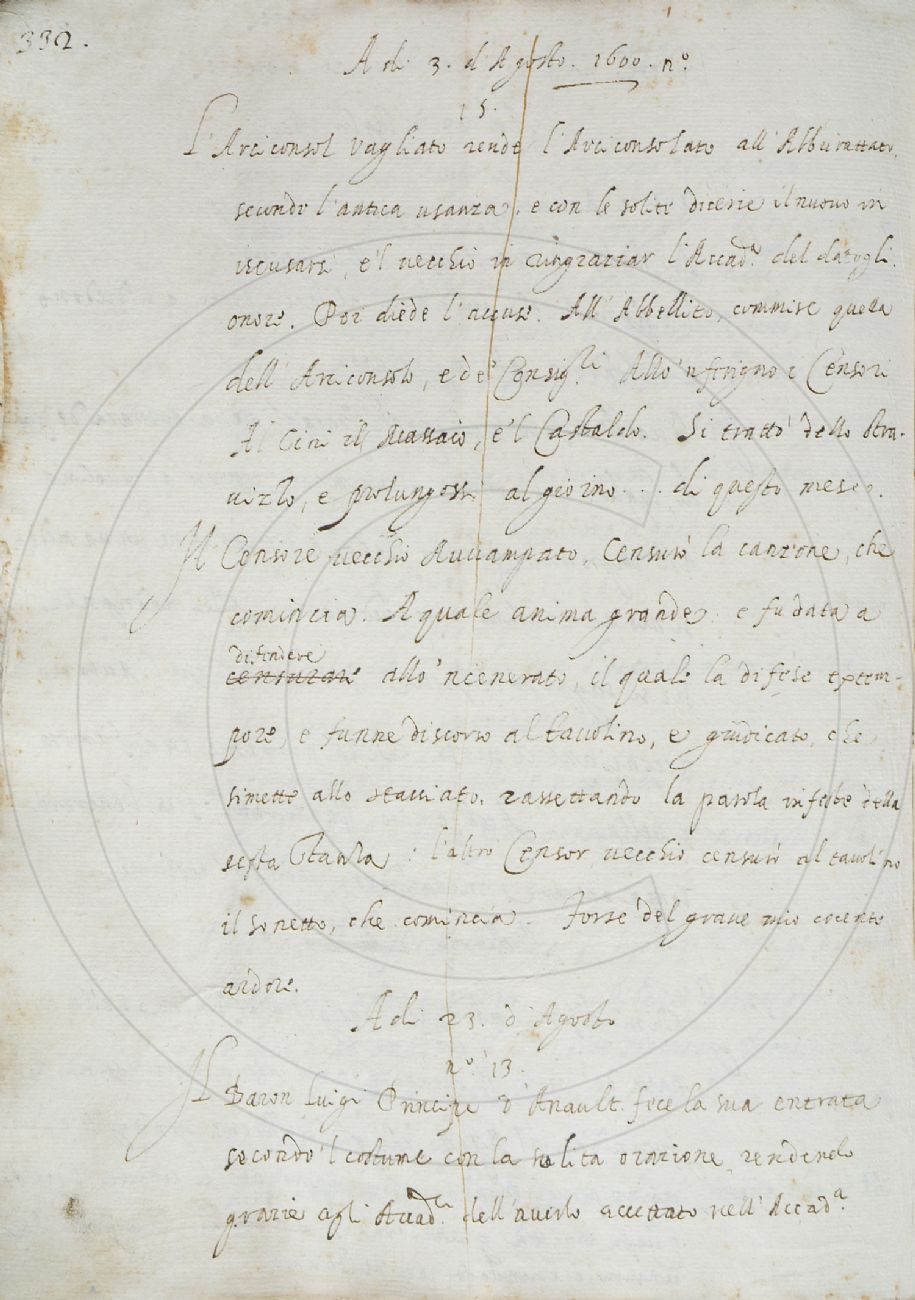 332.
A dì 3. d'Agosto. 1600. n.º
15.
L'Arciconsol Vagliato rende l'Arciconsolato all'Abburattato,
secondo l'antica usanza, e con le solite dicerie il nuovo in
iscusarsi, e'l vecchio in ringraziar l'Accad.ª del datogli
onore. Poi diede l'accuse. All'Abbellito, commise quella
dell'Arciconsolo, e de' Consig.ri Allo 'nferigno i Censori
Al Cini il Massaio, e'l Castaldo. Si trattò dello Stra-
vizzo, e prolungossi al giorno ... di questo mese.
Il Censore vecchio Avvampato, Censurò la canzone, che
comincia. A quale anima grande. e fu data a
difendere
censurare allo 'ncenerato, il quale la difese extem-
pore, e funne discorso al tavolino, e giudicato, che
si mette allo stacciato, rassettando la parola infeste della
sesta stanza: l'altro Censor vecchio censurò al tavolino
il sonetto, che comincia. Forse del grave mio cocente
ardore.
A dì 23. d'Agosto
n.º 13.
Il Baron Luigi Principe d'Anault fece la sua entrata
secondo 'l costume con la solita orazione, rendendo
grazie agli Accad.ci dell'averlo accettato nell'Accad.ª